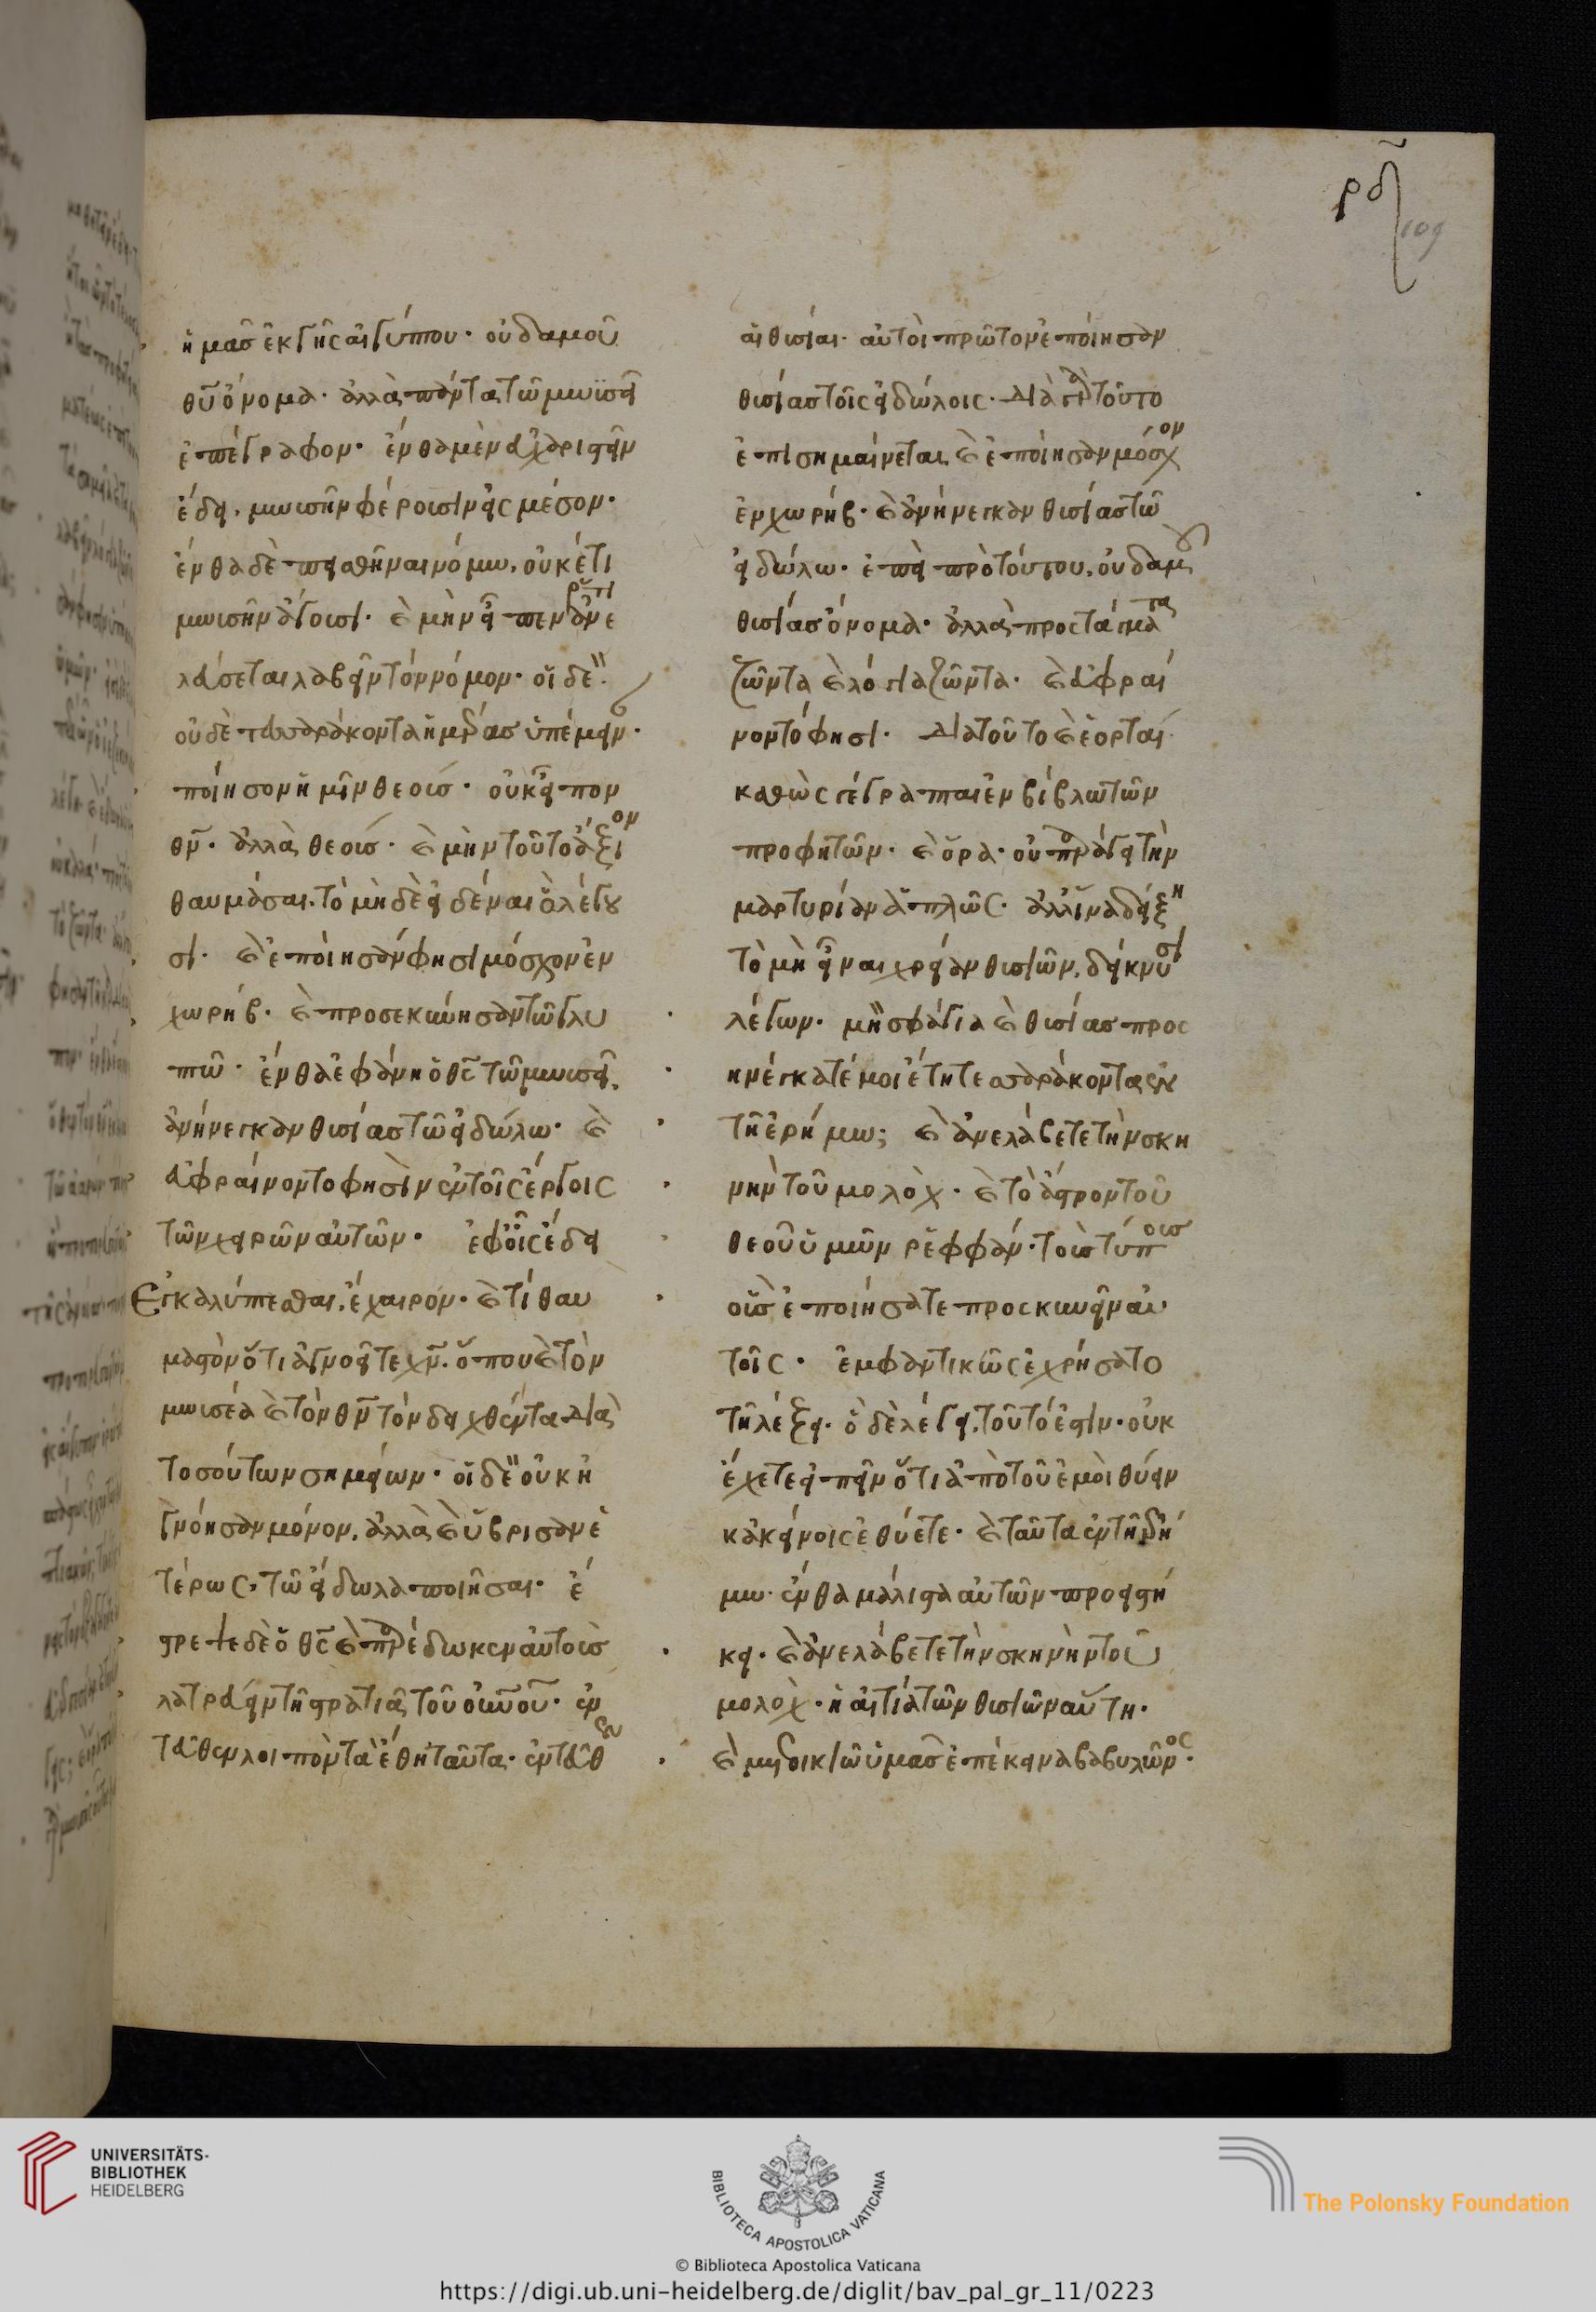 ρδ
109
ἡμᾶσ ἐκ γῆς αἰγύπτου· οὐδαμοῦ
θῦ ὄνομα· ἀλλὰ πάντα τῶ μωϋσεῖ
ἐπέγραφον· ἔνθα μὲν εὐχαριστεῖν
ἔδει, μωυσῆν φέρουσιν εἰς μέσον·
ἔνθα δὲ πεισθῆναι νόμω, οὐκέτι
μωυσῆν ἄγουσι· καὶ μὴν εἶπεν ὅτι ἀνε
λεύσεται λαβεῖν τὸν νόμον· οἱ δὲ
οὐδὲ τεσσαράκοντα ἡμέρασ ὑπέμειναν·
ποίησον ἡμῖν θεούσ· οὐκ εἶπον
θν· ἀλλὰ θεούσ· καὶ μὴν τοῦτο ἄξιον
θαυμάσαι, τὸ μηδὲ εἰδέναι ἃ λέγου
σι· καὶ ἐποίησάν φησι μόσχον ἐν
χωρήβ· καὶ προσεκύνησαν τῶ γλυ
πτῶ· ἔνθα ἐφάνη ὁ θς τῶ μωυσεῖ,
ἀνήνεγκαν θυσίας τῶ εἰδώλω· καὶ
εὐφραίνοντο φησὶν ἐν τοῖς ἔργοις
τῶν χειρῶν αὐτῶν· ἐφ οἷς ἔδει
ἐγκαλύπτεσθαι, ἔχαιρον· καὶ τί θαυ
μαστὸν ὅτι ἀγνοεῖτε χν· ὅπου καὶ τὸν
μωυσέα καὶ τὸν θν τὸν δειχθέντα διὰ
τοσούτων σημείων· οἱ δὲ οὐκ ἠ
γνόησαν μόνον, ἀλλὰ καὶ ὕβρισαν ἑ
τέρως, τῶ εἴδωλα ποιῆσαι· ἔ
στρεψε δὲ ὁ θς καὶ παρέδωκεν αὐτοὺσ
λατρεύειν τῆ στρατιᾶ τοῦ οὐνοῦ· ἐν
τεῦθεν λοιπὸν τὰ ἔθη ταῦτα· ἐντεῦθεν
αἱ θυσίαι· αὐτοὶ πρῶτον ἐποίησαν
θυσίας τοῖς εἰδώλοις· διὰ γὰρ τοῦτο
ἐπισημαίνεται, καὶ ἐποίησαν μόσχον
ἐν χωρήβ· καὶ ἀνήνεγκαν θυσίας τῶ
εἰδώλω· ἐπεὶ πρὸ τούτου, οὐδαμοῦ
θυσίασ ὄνομα· ἀλλὰ προστάγματα
ζῶντα καὶ λόγια ζῶντα· καὶ εὐφραί
νοντό φησι· διὰ τοῦτο καὶ ἑορταί·
καθὼς γέγραπται ἐν βίβλω τῶν
προφητῶν· καὶ ὅρα· οὐ παράγει τὴν
μαρτυρίαν ἁπλῶς· ἀλλ ἵνα δείξη
τὸ μὴ εἶναι χρείαν θυσιῶν, δείκνυσι
λέγων· μὴ σφάγια καὶ θυσίασ προς
ηνέγκατέ μοι ἔτη τεσσαράκοντα ἐν
τῆ ἐρήμω; καὶ ἀνελάβετε τὴν σκη
νὴν τοῦ μολόχ· καὶ τὸ ἄστρον τοῦ
θεοῦ ὑμῶν ρεφφάν· τοὺσ τύπουσ
οὓσ ἐποιήσατε προσκυνεῖν αὐ
τοῖς· ἐμφαντικῶς ἐχρήσατο
τῆ λέξει· ὃ δὲ λέγει, τοῦτό ἐστιν· οὐκ
ἔχετε εἰπεῖν ὅτι ἀπὸ τοῦ ἐμοὶ θύειν
κἀκείνοις ἐθύετε· καὶ ταῦτα ἐν τῆ ἐρή
μω· ἔνθα μάλιστα αὐτῶν προειστή
κει· καὶ ἀνελάβετε τὴν σκηνὴν τοῦ
μολόχ· ἡ αἰτία τῶν θυσιῶν αὕτη·
καὶ μετοικιῶ ὑμᾶσ ἐπέκεινα βαβυλῶνος·
UNIVERSITÄTS-
BIBLIOTHEK
HEIDELBERG
BIBLIOTECA APOSTOLICA VATICANA
© Biblioteca Apostolica Vaticana
The Polonsky Foundation
https://digi.ub.uni-heidelberg.de/diglit/bav_pal_gr_11/0223